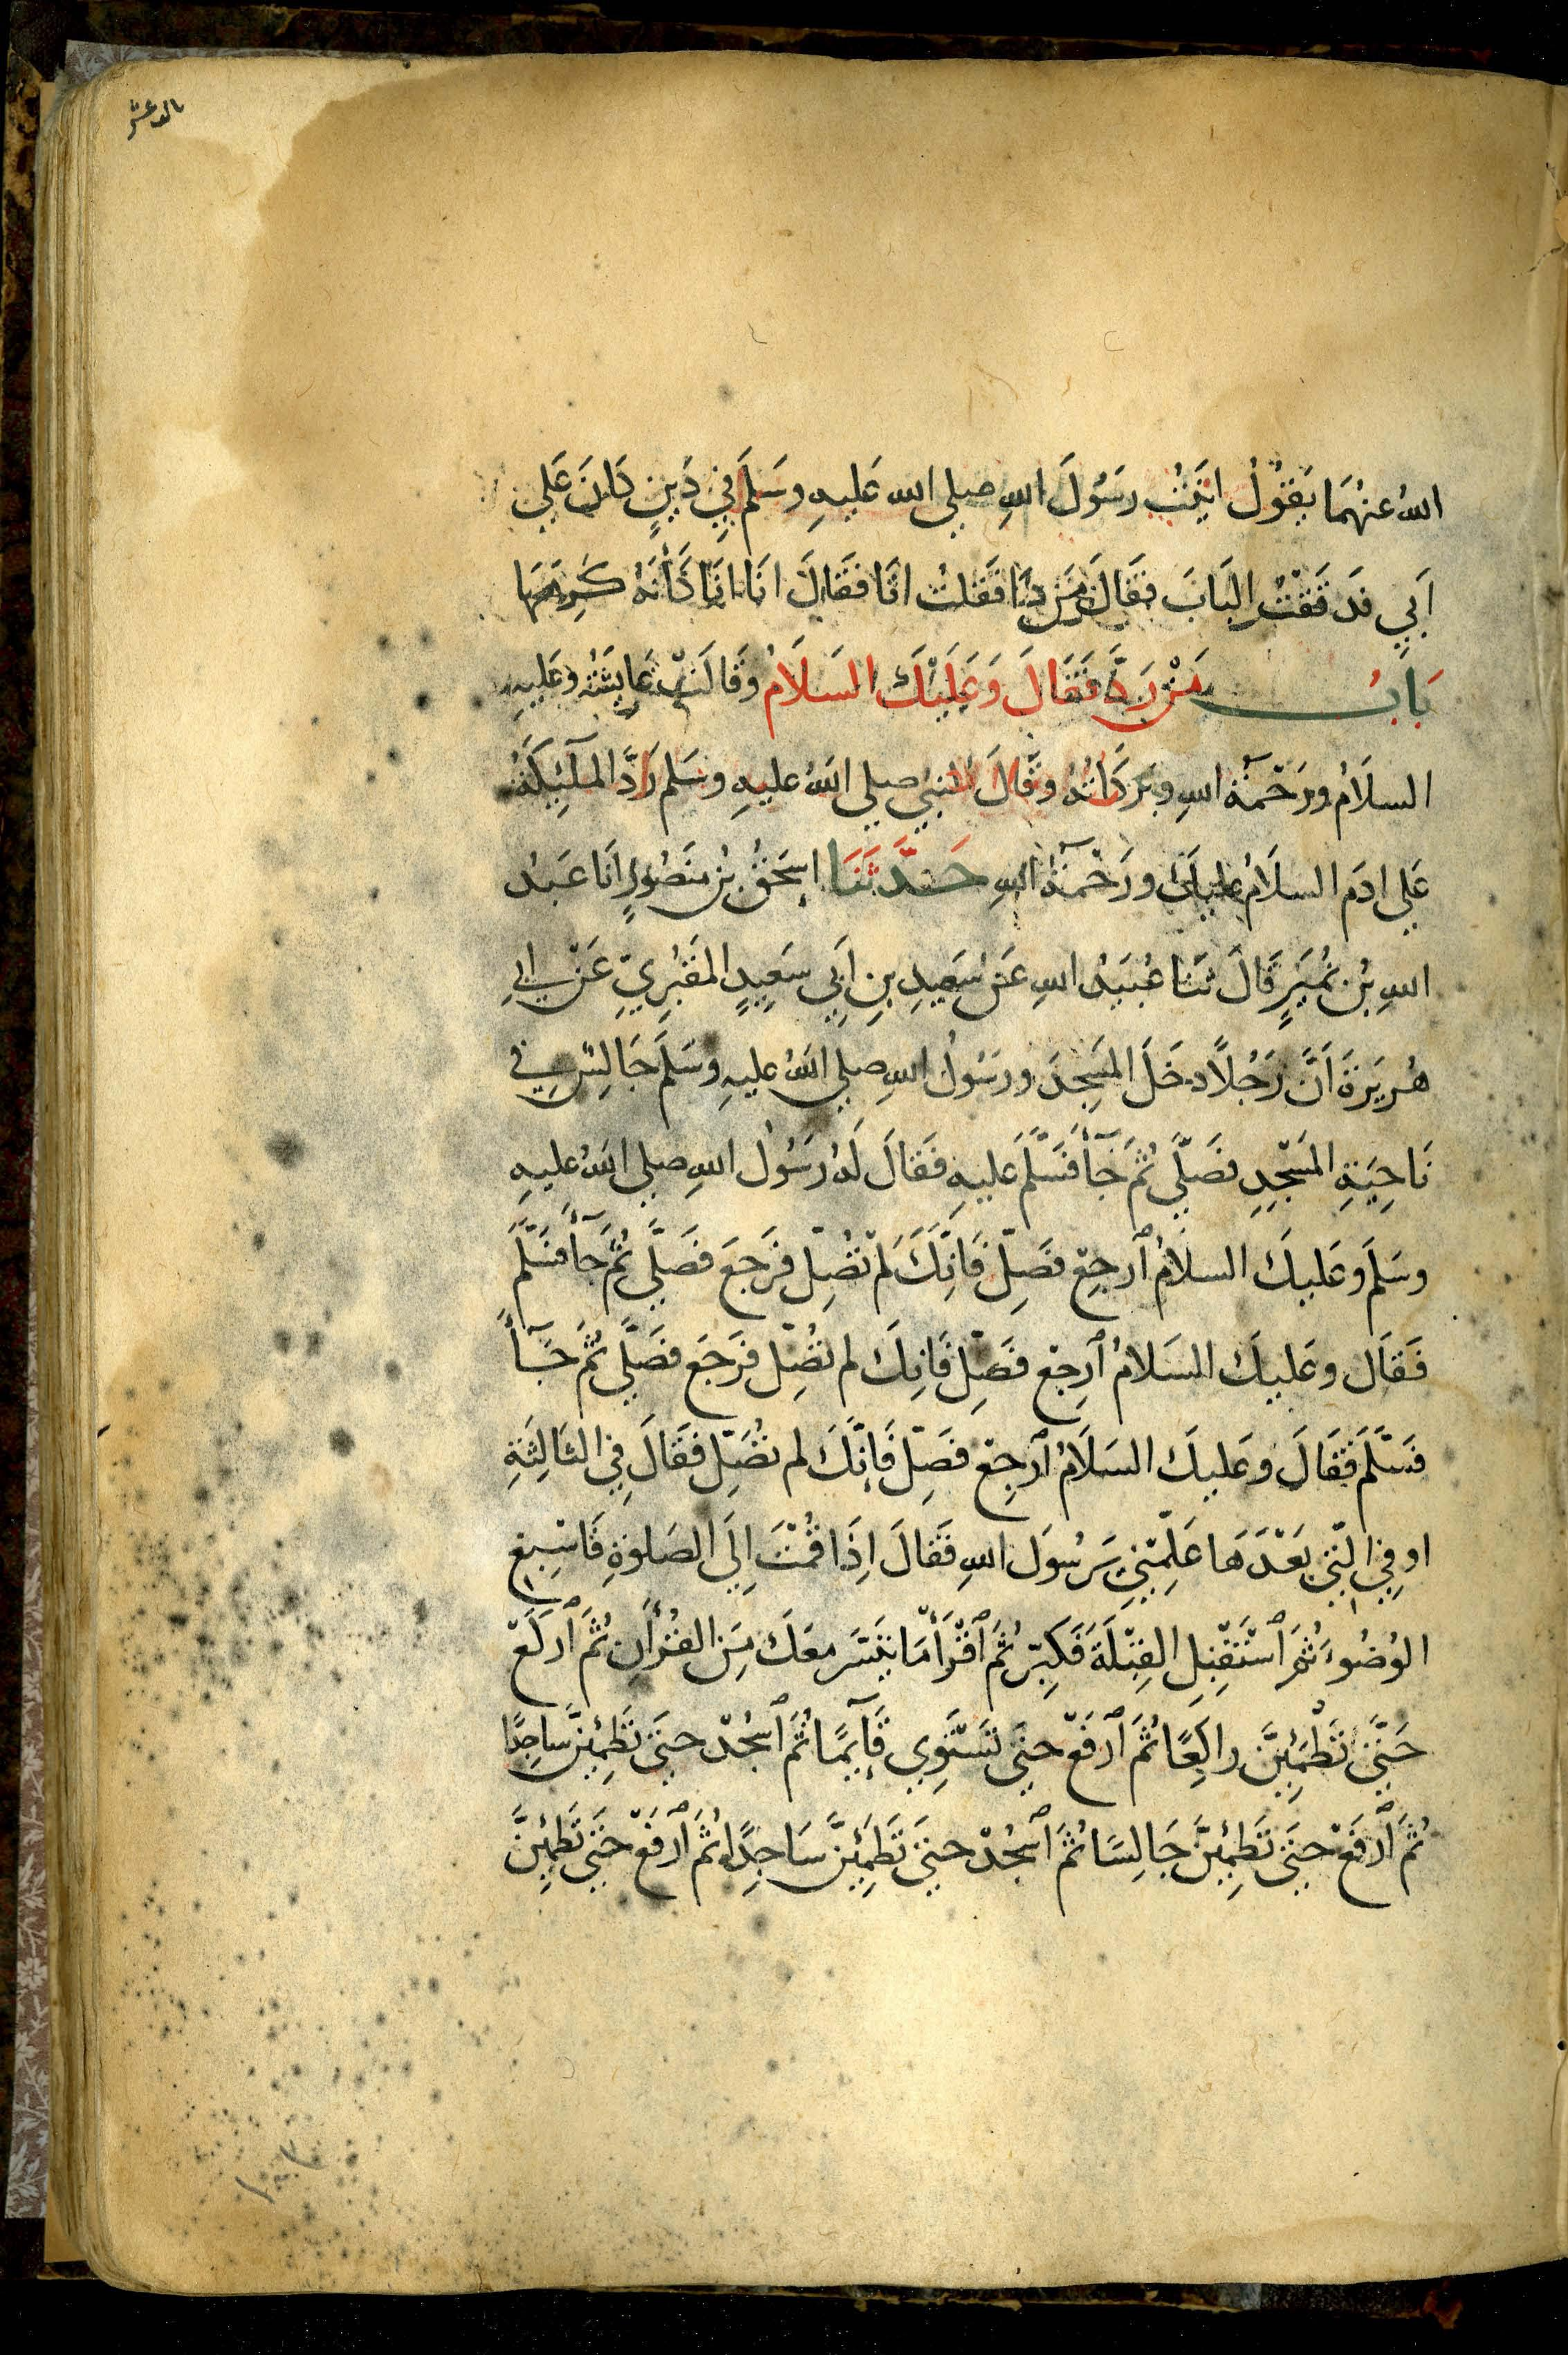 اللهُ عنهُمَا يَقُولُ اتَيْتُ رسَولَ اللهِ صلى الله عَليهِ وسَلَمَ فِي دَينٍ كَانَ عَلي
اَبِي فَدَقَقْتُ البَابَ فقَالَ مَن ذَا فَقلتُ انَا فقَالَ انَا انَا كَأنَهُ كَرِهَهَا
بَابُ مَنْ رَدَّ فَقَالَ وَعَلَيْكَ السَلَامُ وَقَالَتْ عَايِشَةُ وعَليهِ
السلَامُ ورَحْمَةُ اللهِ وبَرَكَاتُهُ وقَالَ النبيُ صلي اللهُ عليهِ وسَلم رَدَّ المَلٓئِكَةُ
عَلي ادَم السلَامُ عليكَ ورَحْمَةُ اللهِ حَدَّثَنَا إِسحَقُ بْنُ مَنصُورٍ انَا عَبدُ
اللهِ بْنُ نُمَيرٍ قَالَ ثَنَا عُبَيدُ اللهِ عَنْ سَعِيدِ بنِ اَبِي سَعِيدٍ المَقبُرِيِّ عَنْ ابِي
هُريَرَةَ اَنَّ رَجُلًا دخَلَ المَسِجدَ ورسُولُ اللهِ صلي اللهُ عليهِ وسَلَمَ جَالِسٌ في
نَاحِيَةِ المَسْجِدِ فصَلَّي ثُمَ جَآأَ فَسَلَّمَ عَليهِ فَقالَ لَهُ رَسُولُ اللهِ صلي اللهُ عليهِ
وسَلمَ وعَليكَ السلَامُ ٱرجِعْ فصَلِّ فَانَّكَ لَمْ تُصَلِّ فرَجعَ فصَلَّي ثُمَّ جَآأَ فسَلَّمَ
فَقَال وعَليكَ السَلامُ ٱرجِعْ فصَلِّ فَانكَ لم تُصَلِّ فرَجَع فصَلَّي ثُمَ جَآأَ
فسَلَّمَ فقَالَ وعَليكَ السَلَامُ ٱرجِعْ فصَلِّ فَاِنَّكَ لم تُصَلِّ فقَالَ فِي الثَالِثَةِ
او فِي الَّتي بَعْدَهَا عَلِّمْنِي يَرسُولَ اللهِ فقَالَ اِذَا قُمْتَ اِلَي الصَلوةِ فَاسْبِغِ
الوُضُوءَ ثُمَ ٱسْتَقْبِلِ القِبْلَةَ فَكَبِّرْ ثُمَ ٱقْرَأْ مَا تَيَسَّرَ معَكَ مِنَ القُرْأَنِ ثُمَ ٱركَعْ
حَتَّي تَطْمَئِنَّ راكِعًا ثُمَ ٱرفَعْ حتَي تَسْتَوِي قَآئِمًا ثُمَ ٱسجُدْ حتَي تَطمَئِنَّ ساجِدًا
ثُمَ ٱرفَعْ حتَي تَطمَئِنَّ جَالِسًا ثُمَ ٱسجُدْ حتَي تَطمَئِنَّ سَاجِدًا ثُمَ ٱرفَعْ حتَي تَطمَئِنَّ